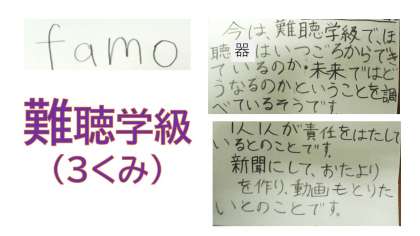 famo
難聴学級
(3くみ)
今は、難聴学級で、ほ
聴器はいつごろからでき
ているのか・未来ではど
うなるのかということを調
べているそうです。
1人1人が責任をはたして
いるとのことです。
新聞にして、おたより
を作り、動画もとりた
いとのことです。